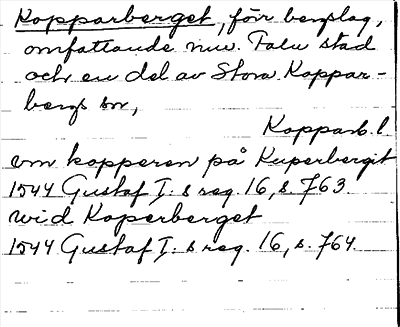 Kopparberget, förr bergslag,
omfattande nuv. Falu stad
och en del av Stora Koppar-
bergs sn,
Kopparb. l.
om kopperen på Kuperbergit
1544 Gustaf I:s reg. 16, s. 763.
wid Koperberget
1544 Gustaf I:s reg. 16, s. 764.